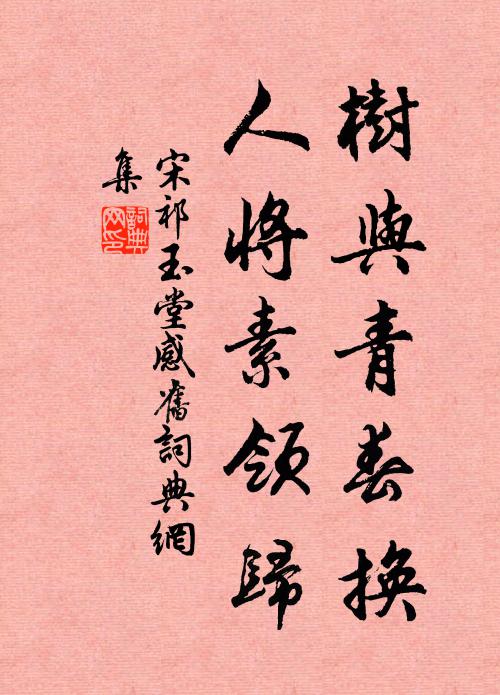 樹與青春換
人將素領歸
宋祁玉堂感舊詞典網
集
詞典
网印